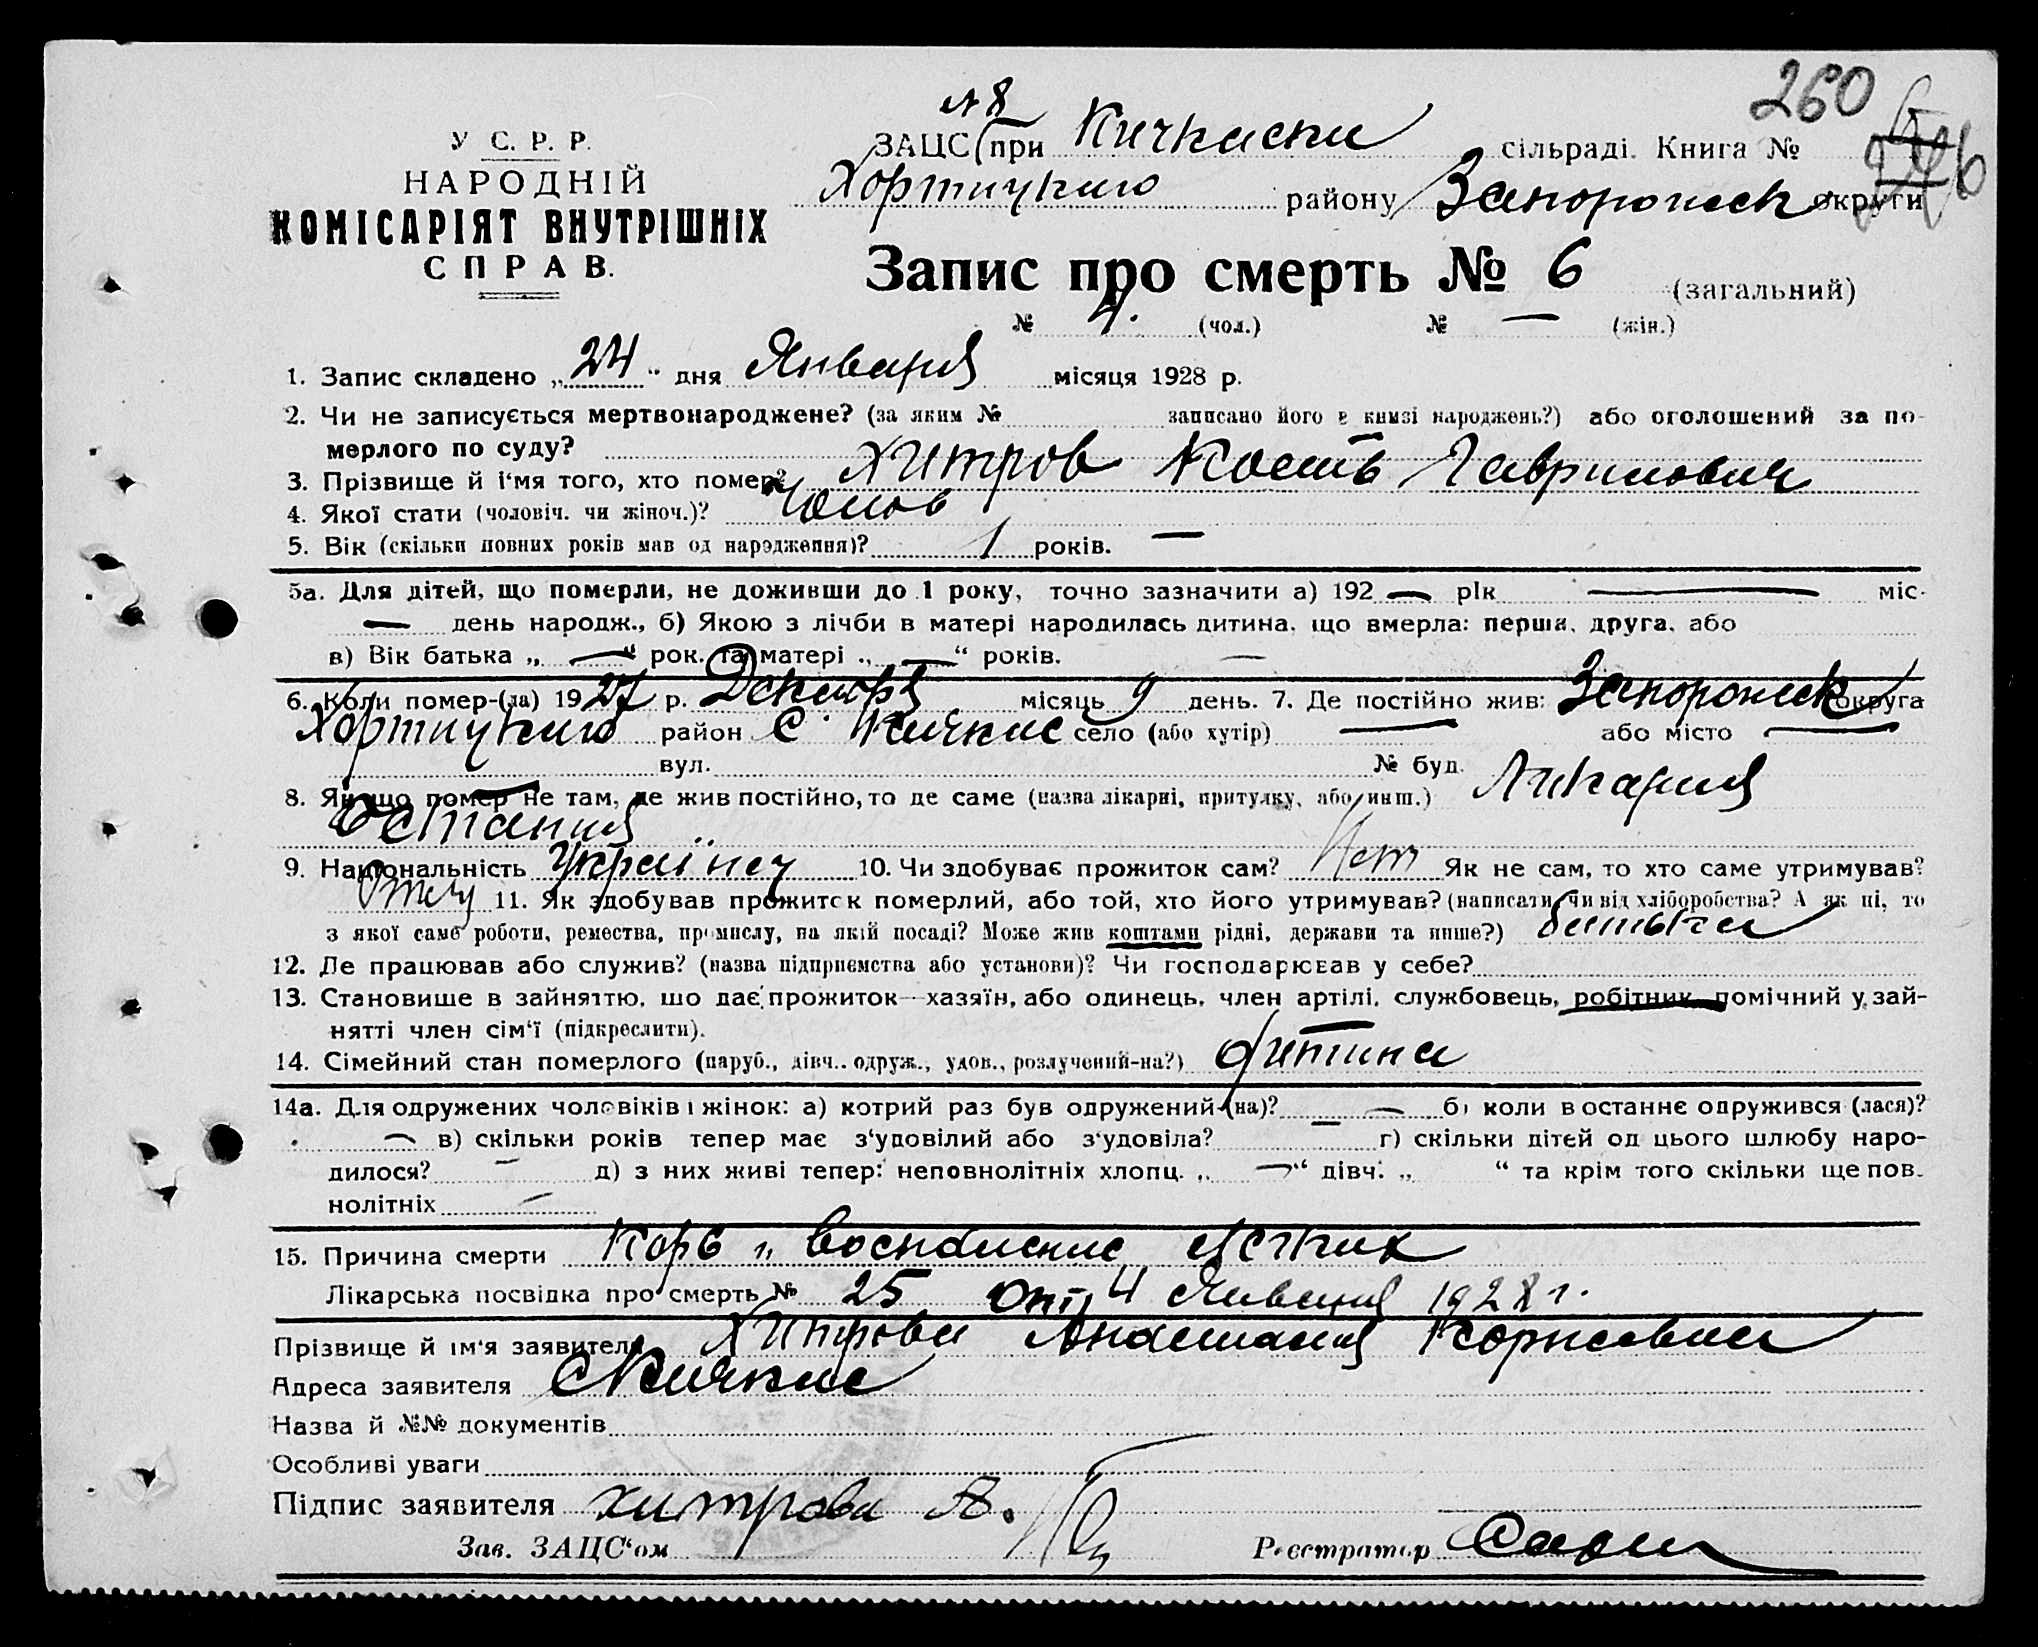 260
№ 8
У С. Р. Р.
НАРОДНІЙ
КОМІСАРІЯТ ВНУТРІШНІХ
СПРАВ.
ЗАЦС при Кичкаски сільраді. Книга №
Хортицкаго району Запорожск округи
Запис про смерть № 6 (загальний)
№ 4. (чол.) № — (жін.)
1. Запис складено „24“ дня Января місяця 1928 р.
2. Чи не записується мертвонароджене? (за яким № записано його в книзі народжень?) або оголошений за по-
мерлого по суду?
3. Прізвище й і‘мя того, хто помер? Хитров Кость Гаврилович
4. Якої стати (чоловіч. чи жіноч.)? Чолов
5. Вік (скільки повних років мав од народження)? 1 років. —
5а. Для дітей, що померли, не доживши до 1 року, точно зазначити а) 192 — рік — міс.
— день народж., б) Якою з лічби в матері народилась дитина, що вмерла: перша, друга, або
в) Вік батька „ — “ рок. та матері „ — “ років. —
6. Коли помер-(ла) 1927 р. Декабря місяць 9 день. 7. Де постійно жив: Запорожск округа
Хортицкаго район С. Кичкас село (або хутір) — або місто —
вул. № буд.
8. Якщо помер не там, де жив постійно, то де саме (назва лікарні, притулку, або инш.) Ликарня
9. Національність Українец 10. Чи здобуває прожиток сам? Нет Як не сам, то хто саме утримував?
Отец 11. Як здобував прожиток померлий, або той, хто його утримував? (написати чи від хліборобства? А як ні, то
з якої саме роботи, ремества, промислу, на якій посаді? Може жив коштами рідні, держави та инше?) батька
12. Де працював або служив? (назва підприємства або установи)? Чи господарював у себе?
13. Становище в зайняттю, що дає прожиток—хазяїн, або одинець, член артілі, службовець, робітник, помічний у зай-
нятті член сім‘ї (підкреслити).
14. Сімейний стан померлого (паруб., дівч., одруж., удов., розлучений-на?) дитина
14а. Для одружених чоловіків і жінок: а) котрий раз був одружений-(на)? — б) коли востаннє одружився (лася)?
— в) скільки років тепер має з‘удовілий або з‘удовіла? — г) скільки дітей од цього шлюбу наро-
дилося? — д) з них живі тепер: неповнолітніх хлопц. „ — “ дівч. „ “ та крім того скільки ще пов-
нолітніх —
15. Причина смерти Корь и воспаление легких
Лікарська посвідка про смерть № 25 от 4 Января 1928 г.
Прізвище й ім‘я заявителя Хитрова Анастасия Корнеевна
Адреса заявителя с Кичкас
Назва й №№ документів
Особливі уваги
Підпис заявителя Хитрова А.
Зав. ЗАЦС‘ом Реєстратор